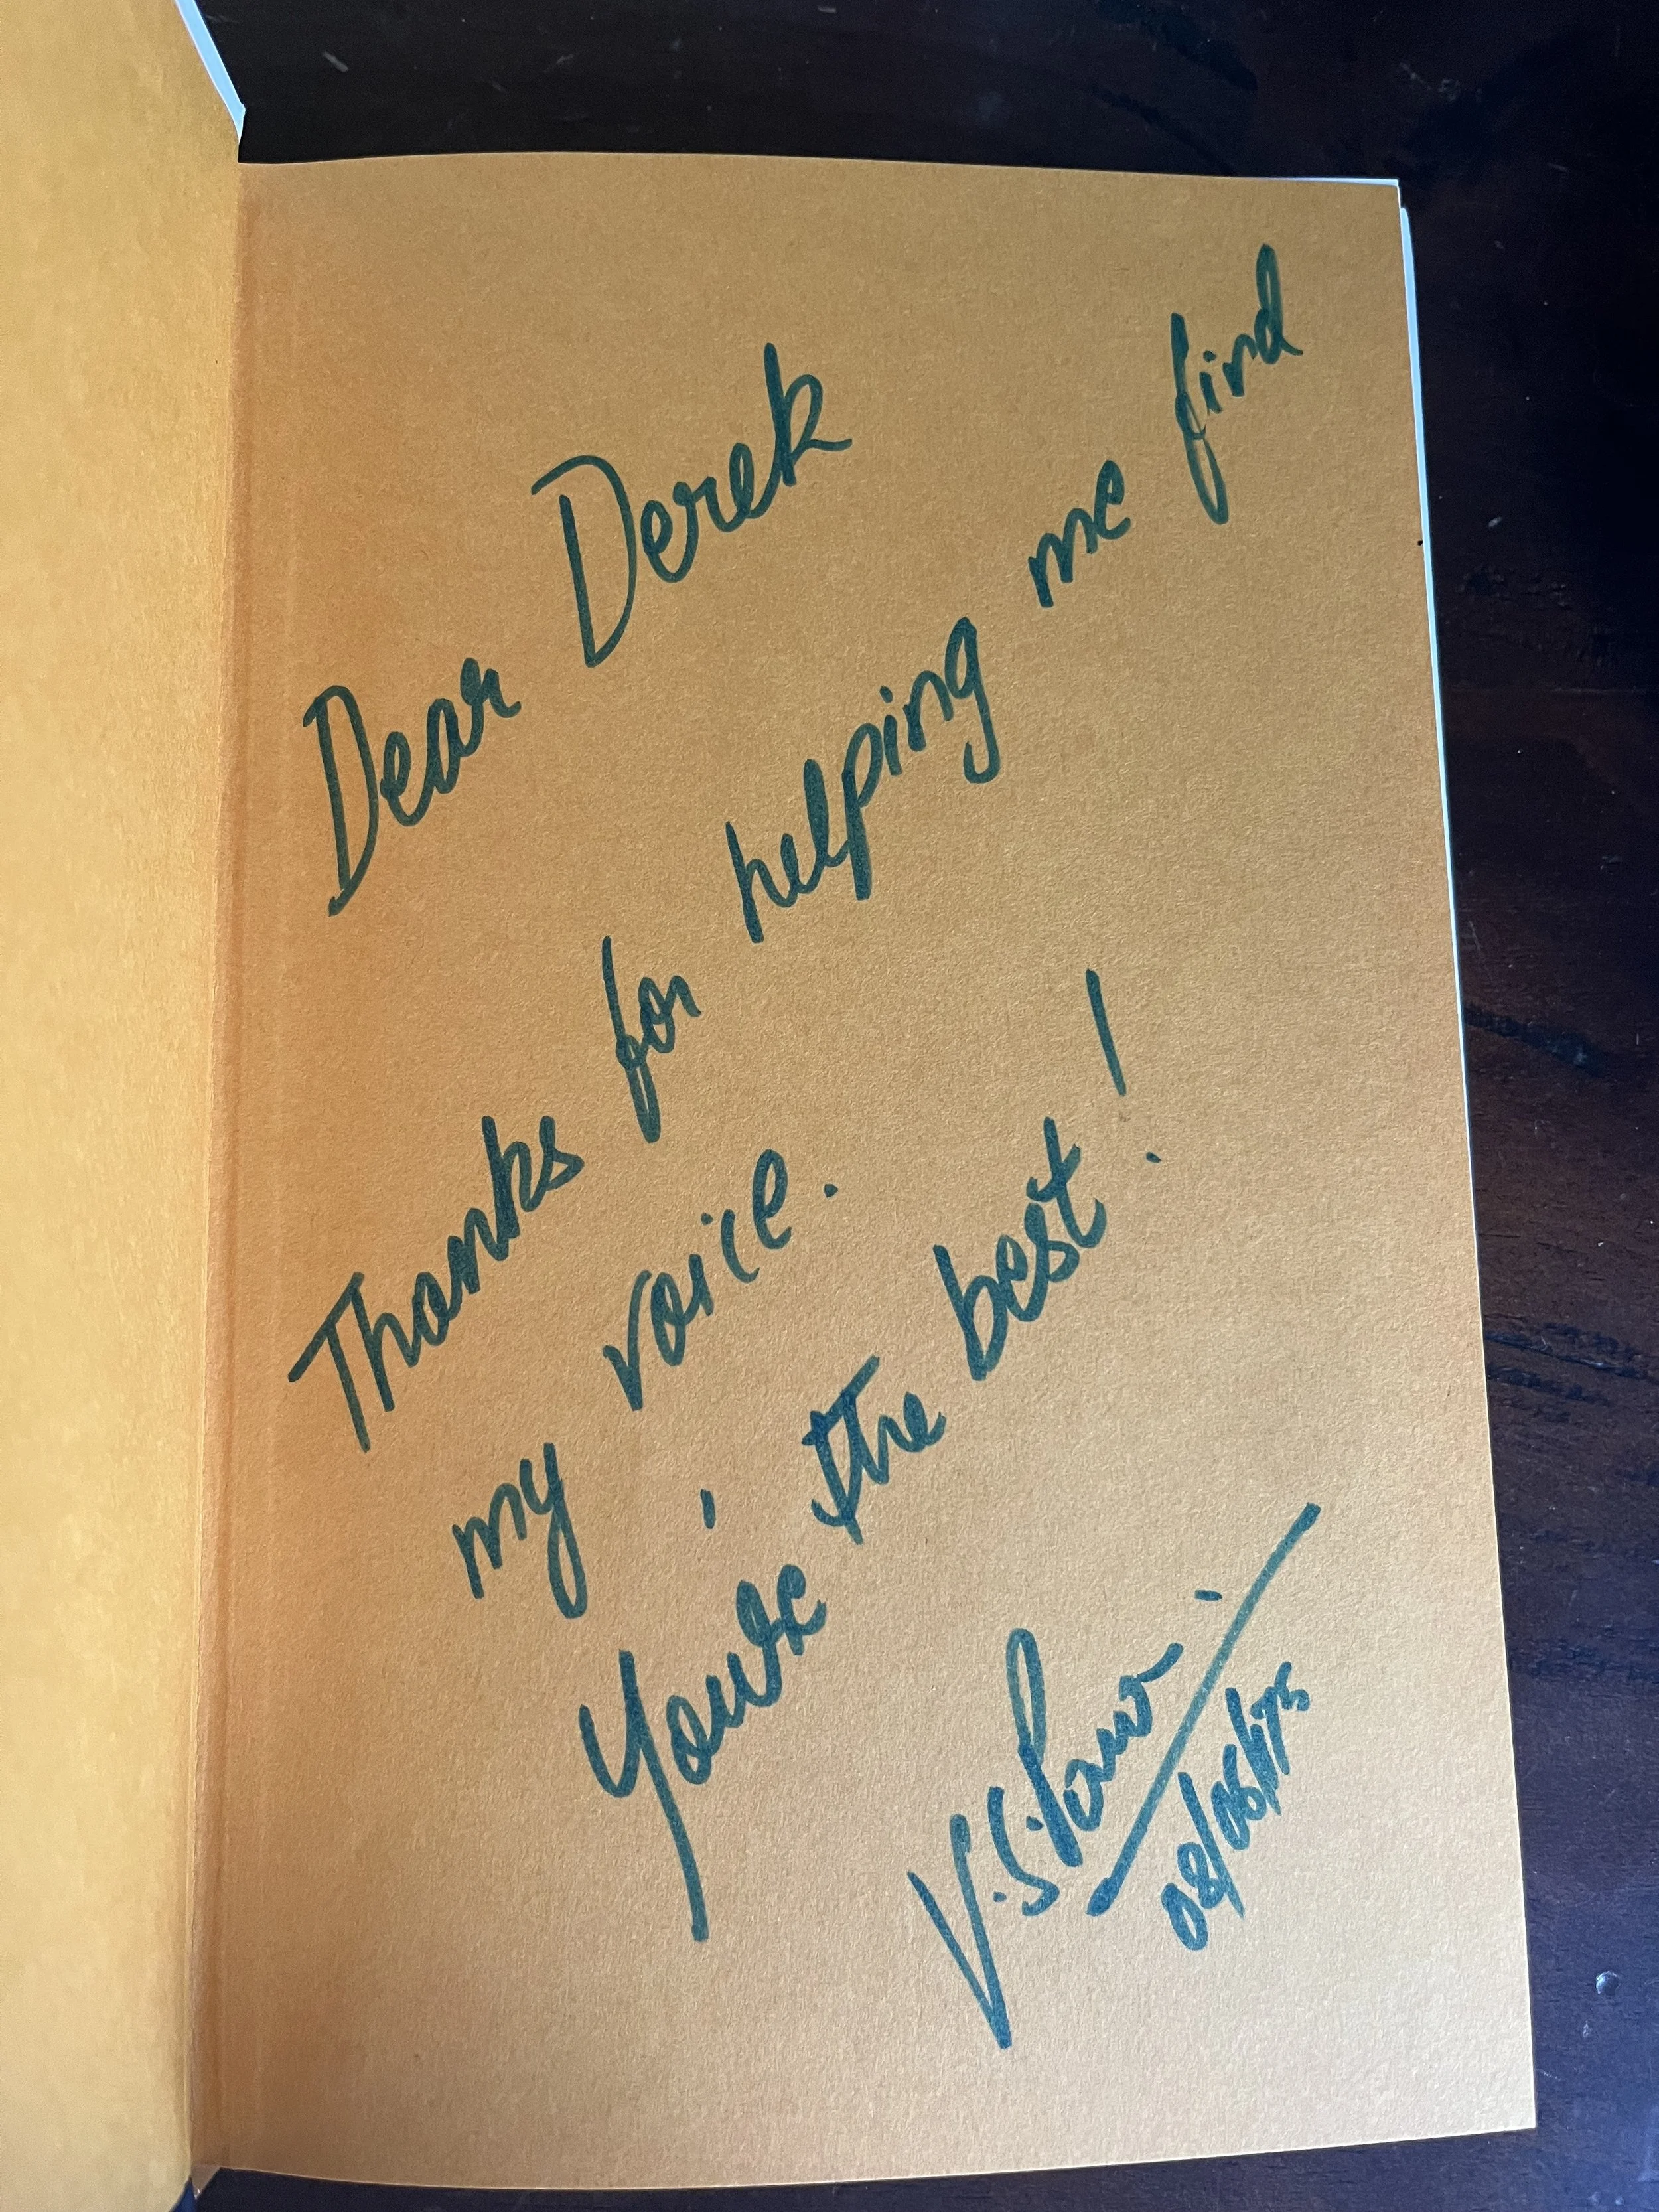 Dear Derek
Thanks for helping me find
my voice.
You're the best!
V.S.